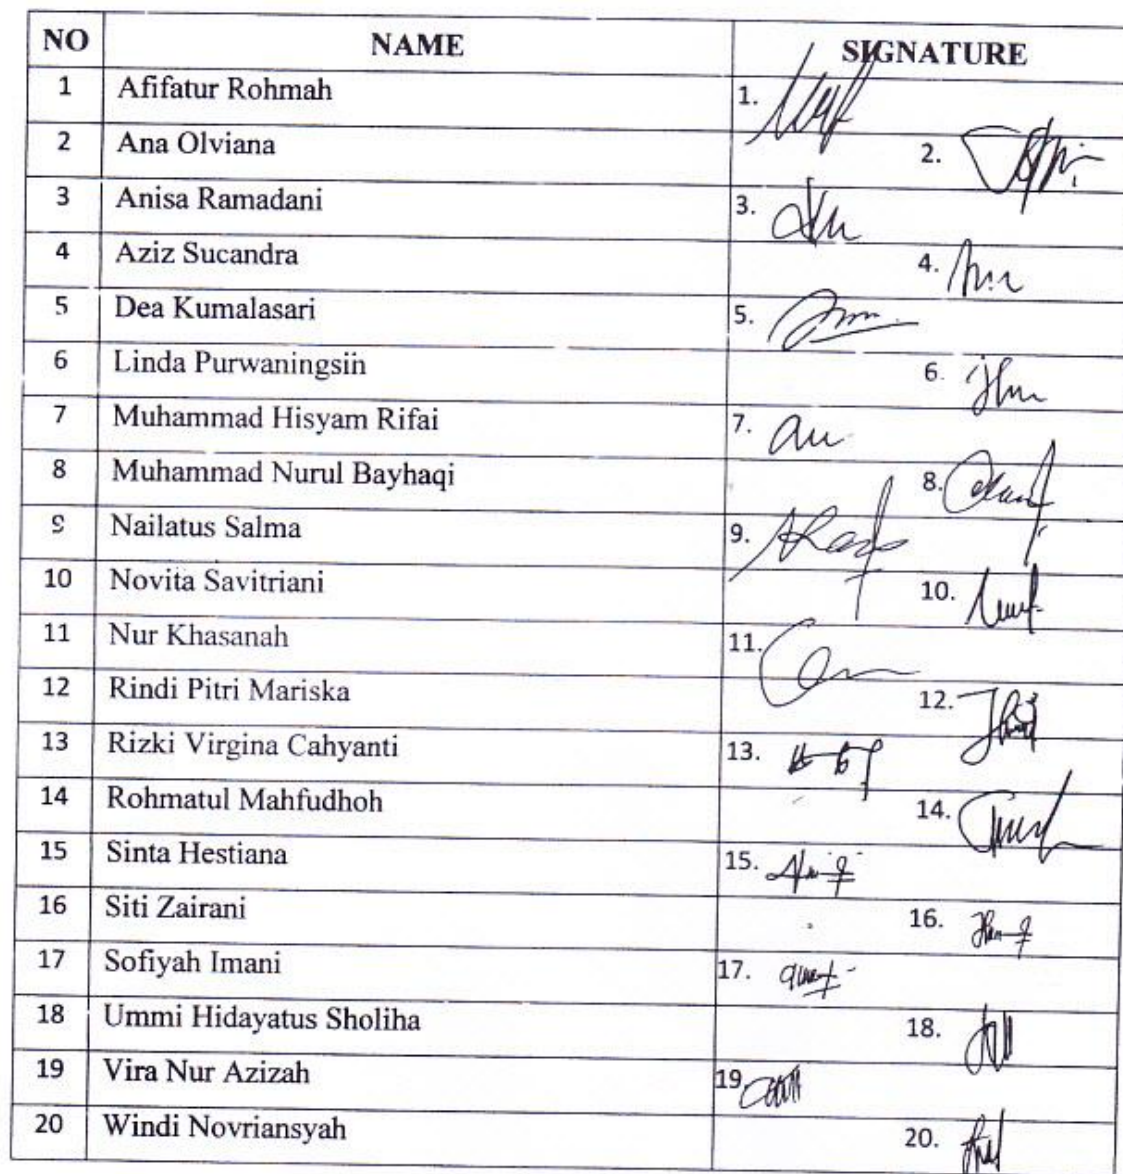 NO NAME SIGNATURE
1 Afifatur Rohmah 1.
2 Ana Olviana 2.
3 Anisa Ramadani 3.
4 Aziz Sucandra 4.
5 Dea Kumalasari 5.
6 Linda Purwaningsih 6.
7 Muhammad Hisyam Rifai 7.
8 Muhammad Nurul Bayhaqi 8.
9 Nailatus Salma 9.
10 Novita Savitriani 10.
11 Nur Khasanah 11.
12 Rindi Pitri Mariska 12.
13 Rizki Virgina Cahyanti 13.
14 Rohmatul Mahfudhoh 14.
15 Sinta Hestiana 15.
16 Siti Zairani 16.
17 Sofiyah Imani 17.
18 Ummi Hidayatus Sholiha 18.
19 Vira Nur Azizah 19
20 Windi Novriansyah 20.